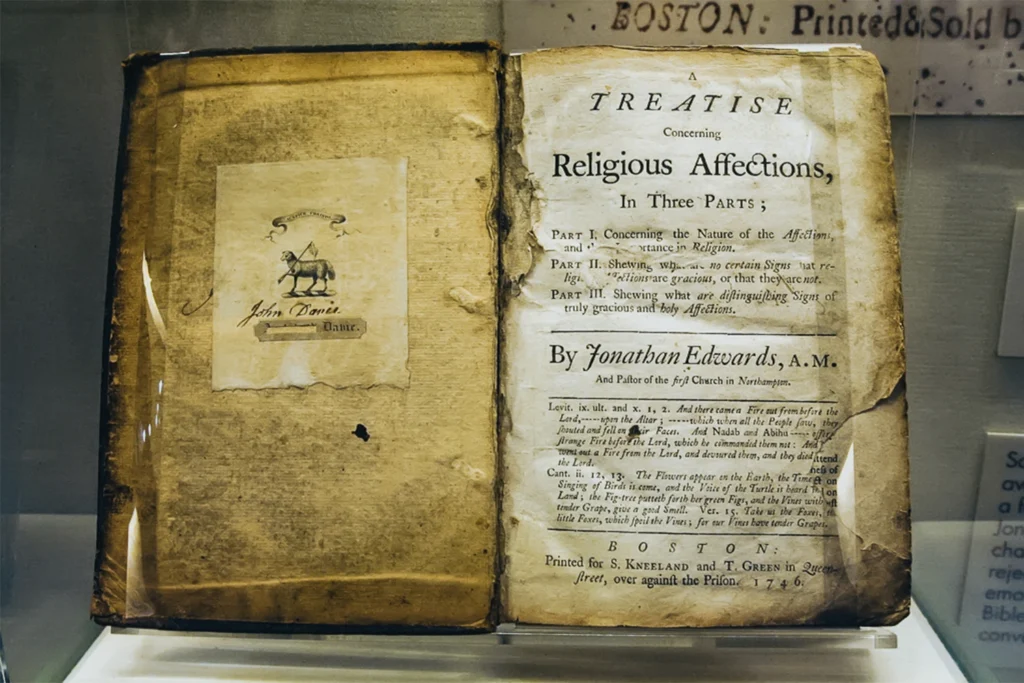 BOSTON: Printed&Sold b
John Davie.
Davie.
A
TREATISE
Concerning
Religious Affections,
In Three PARTS ;
PART I. Concerning the Nature of the Affections,
and importance in Religion.
PART II. Shewing what are no certain Signs that re-
ligi Affections are gracious, or that they are not.
PART III. Shewing what are diſtinguiſhing Signs of
truly gracious and holy Affections.
By Jonathan Edwards, A.M.
And Paſtor of the firſt Church in Northampton.
Levit. ix. ult. and x. 1, 2. And there came a Fire out from before the
Lord,-----upon the Altar ; -----which when all the People ſaw, they
ſhouted and fell on their Faces. And Nadab and Abihu ----- offer
ſtrange Fire before the Lord, which he commanded them not : And
went out a Fire from the Lord, and devoured them, and they died
the Lord.
Cant. ii. 12, 13. The Flowers appear on the Earth, the Time
Singing of Birds is come, and the Voice of the Turtle is heard
Land ; the Fig-tree putteth forth her green Figs, and the Vines with
tender Grape, give a good Smell. Ver. 15. Take us the Foxes,
little Foxes, which ſpoil the Vines ; for our Vines have tender Grapes.
BOSTON:
Printed for S. KNEELAND and T. GREEN in Queen-
ſtreet, over againſt the Priſon. 1746.
a f
Jon
cha
reje
emo
Bible
conv